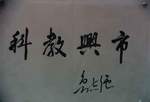 科教興市